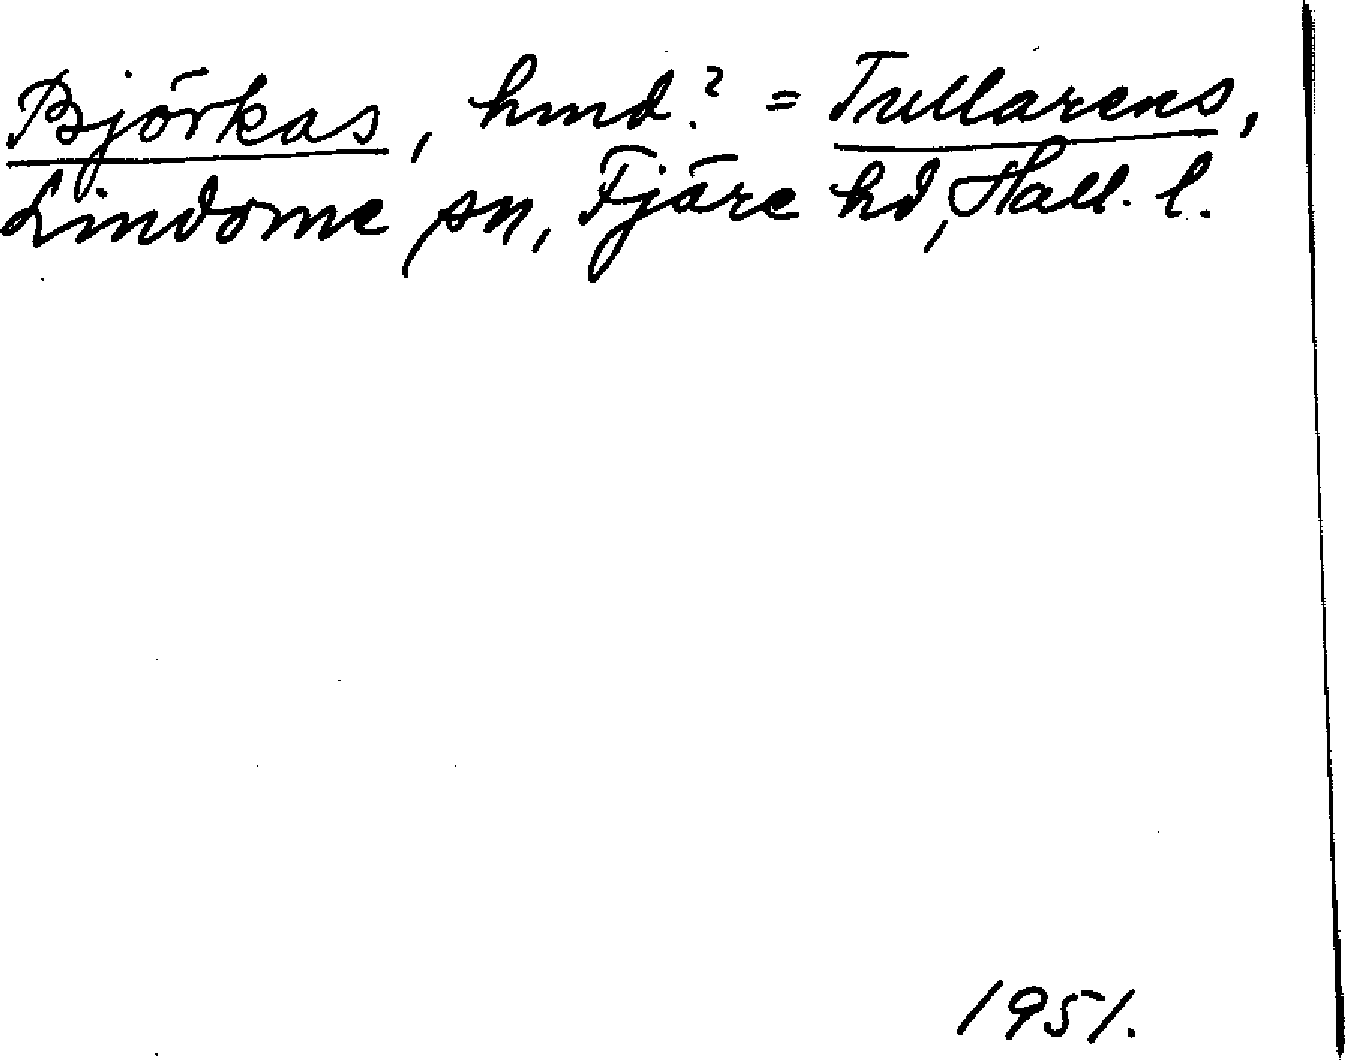 Björkas, hmd? = Tullarens,
Lindome sn, Fjäre hd, Hall. l.
1951.